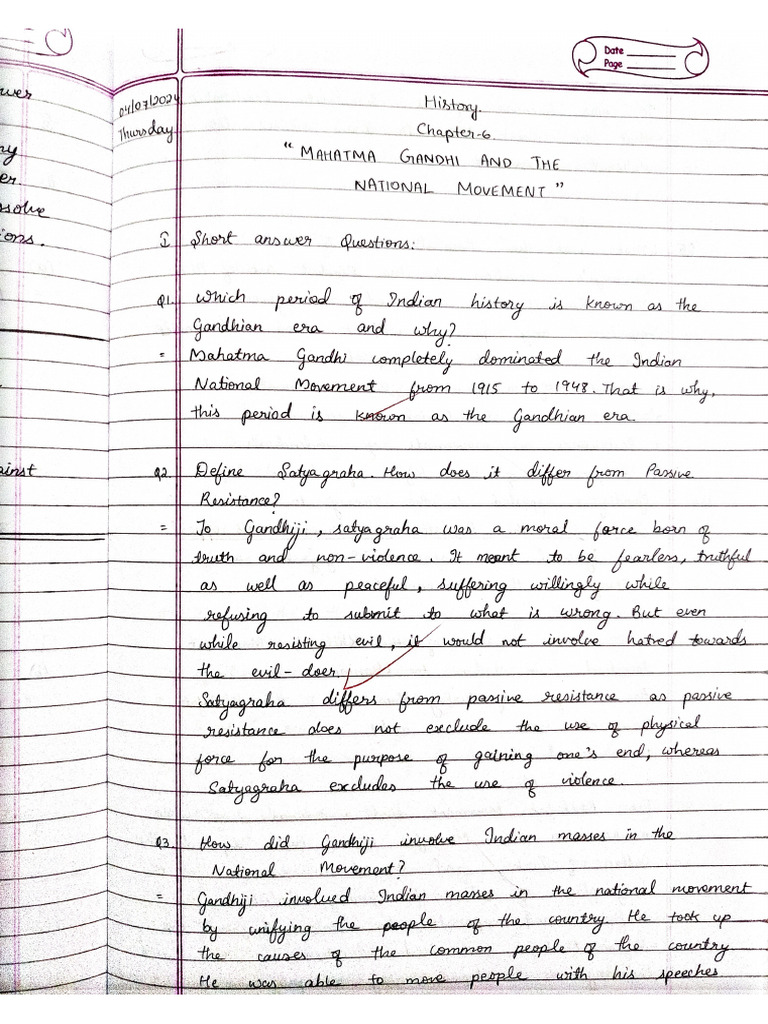 wer
ny
er.
ssolve
ions.
ainst
Date
Page
04/07/2024
Thursday
History
Chapter-6
"MAHATMA GANDHI AND THE
NATIONAL MOVEMENT"
I Short answer Questions:
Q1. Which period of Indian history is known as the
Gandhian era and why?
= Mahatma Gandhi completely dominated the Indian
National Movement from 1915 to 1948. That is why,
this period is known as the Gandhian era.
Q2. Define Satyagraha. How does it differ from Passive
Resistance?
= To Gandhiji, satyagraha was a moral force born of
truth and non-violence. It meant to be fearless, truthful
as well as peaceful, suffering willingly while
refusing to submit to what is wrong. But even
while resisting evil, it would not involve hatred towards
the evil-doer.
Satyagraha differs from passive resistance as passive
resistance does not exclude the use of physical
force for the purpose of gaining one's end, whereas
Satyagraha excludes the use of violence.
Q3. How did Gandhiji involve Indian masses in the
National Movement?
= Gandhiji involved Indian masses in the national movement
by unifying the people of the country. He took up
the causes of the common people of the country
He was able to move people with his speeches